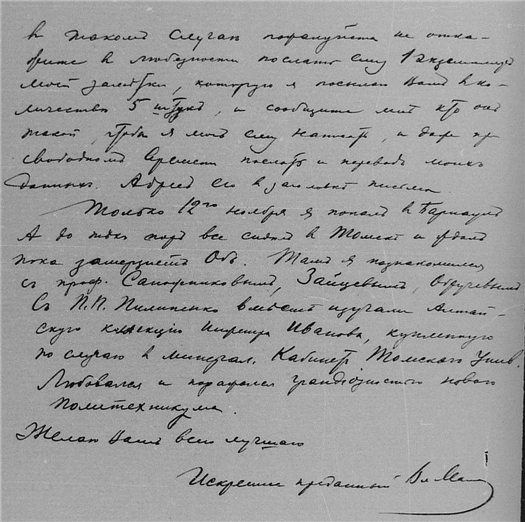 въ такомъ случаѣ пожалуйста не отка-
жите въ любезности послать ему 1 экземпляръ
моей замѣтки, которую я посылаю Вамъ въ ко-
личествѣ 5 штукъ, и сообщите мнѣ кто онъ
такой, чтобы я могъ ему написать, и даже при
свободномъ времени послать и переводъ моихъ
данныхъ. Адресъ его въ письма
Только 12го ноября я попалъ въ Барнаулъ
А до тѣхъ поръ все сидѣлъ въ Томскѣ и ждалъ
пока замерзнетъ Обь. Тамъ я познакомился
съ проф. Сапожниковымъ, Зайцевымъ, Обручевымъ
Съ П.П. Пилипенко вмѣстѣ изучали Алтай-
скую коллекцію Иванова, купленную
по случаю въ минерал. Кабинетъ Томскаго Унив.
Любовался и поражался грандіозностью новаго
политехникума.
Желаю Вамъ всего лучшаго
Искренне преданный Вл.